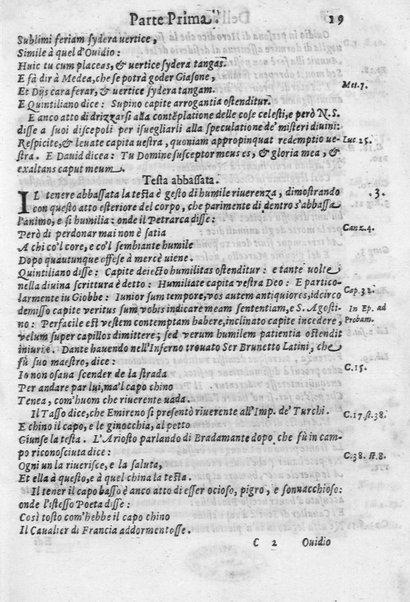 Parte Prima. 19
Sublimi feriam sydera vertice,
Simile à quel d'Ouidio:
Huic tu cum placeas, & vertice sydera tangas.
E fà dir à Medea, che se potrà goder Giasone,
Et Dijs cara ferar, & vertice sydera tangam. Met. 7.
E Quintiliano dice: Supino capite arrogantia ostenditur.
E anco atto di drizzarsi alla contẽplatione delle cose celesti, e però N.S.
disse a suoi discepoli per isuegliarli alla speculatione de' misteri diuini:
Respicite, & leuate capita vestra, quoniam appropinquat redemptio ve- Luc 25.
stra. E Dauid dicea: Tu Domine susceptor meus es, & gloria mea, &
exaltans caput meum.
Testa abbassata.
IL tenere abbassata la testa è gesto di humile riuerenza, dimostrando 3.
con questo atto esteriore del corpo, che parimente di dentro s'abbassa
l'animo, e si humilia: onde il Petrarca disse:
Però di perdonar mai non è satia Canz. 4.
A chi co'l core, e co'l sembiante humile
Dopo quautunque offese à mercè uiene.
Quintiliano disse: Capite deiecto humilitas ostenditur: e tante uolte
nella diuina scrittura è detto: Humiliate capita vestra Deo: E partico-
larmente iu Giobbe: Iunior sum tempore, vos autem antiquiores, idcirco Cap. 32.
demisso capite veritus sum vobis indicare meam sententiam, e S. Agosti-
no: Perfacile est vestem contemptam habere, inclinato capite incedere, In Ep. ad
velum super capillos dimittere; sed verum humilem patientia ostendit Probam.
iniurię. Dante hauendo nell'Inferno trouato Ser Brunetto Latini, che
fù suo maestro, dice: C. 15.
Io non osaua scender de la strada
Per andare par lui, ma'l capo chino
Tenea, com'huom che riuerente uada.
Il Tasso dice, che Emireno si presentò riuerente all'Imp. de' Turchi. C. 17. st. 38.
E chino il capo, e le ginocchia, al petto
Giunse la testa. L'Ariosto parlando di Bradamante dopo che fù in cam-
po riconosciuta dice: C. 38. st. 8.
Ogni un la riuerisce, e la saluta,
Et ella à questo, e à quel china la testa.
Il tener il capo basso è anco atto di esser ocioso, pigro, e sonnacchioso:
onde l'istesso Poeta disse:
Così tosto com'hebbe il capo chino
Il Caualier di Francia addormentosse.
C 2 Ouidio